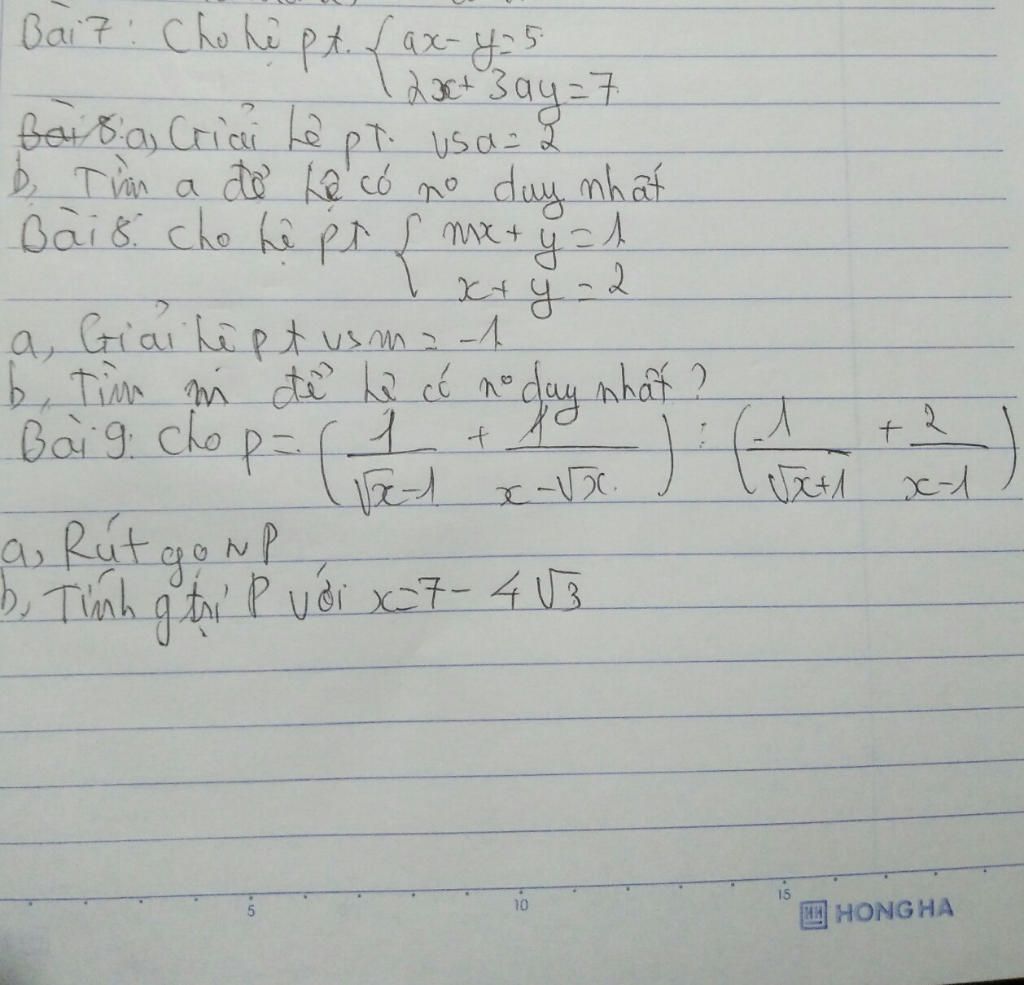 Bài 7: Cho hệ pt. { ax - y = 5
2x + 3ay = 7
Bài 8: a, Giải hệ pT. vs a = 2
b, Tìm a để hệ có nº duy nhất
Bài 8: Cho hệ pt { mx + y = 1
x + y = 2
a, Giải hệ pt vs m = -1
b, Tìm m để hệ có nº duy nhất?
Bài 9: Cho p = ( 1/(√x-1) + 1/(x-√x) ) : ( 1/(√x+1) + 2/(x-1) )
a, Rút gọn P
b, Tính g trị P với x = 7 - 4√3
5 10 15
HONG HA